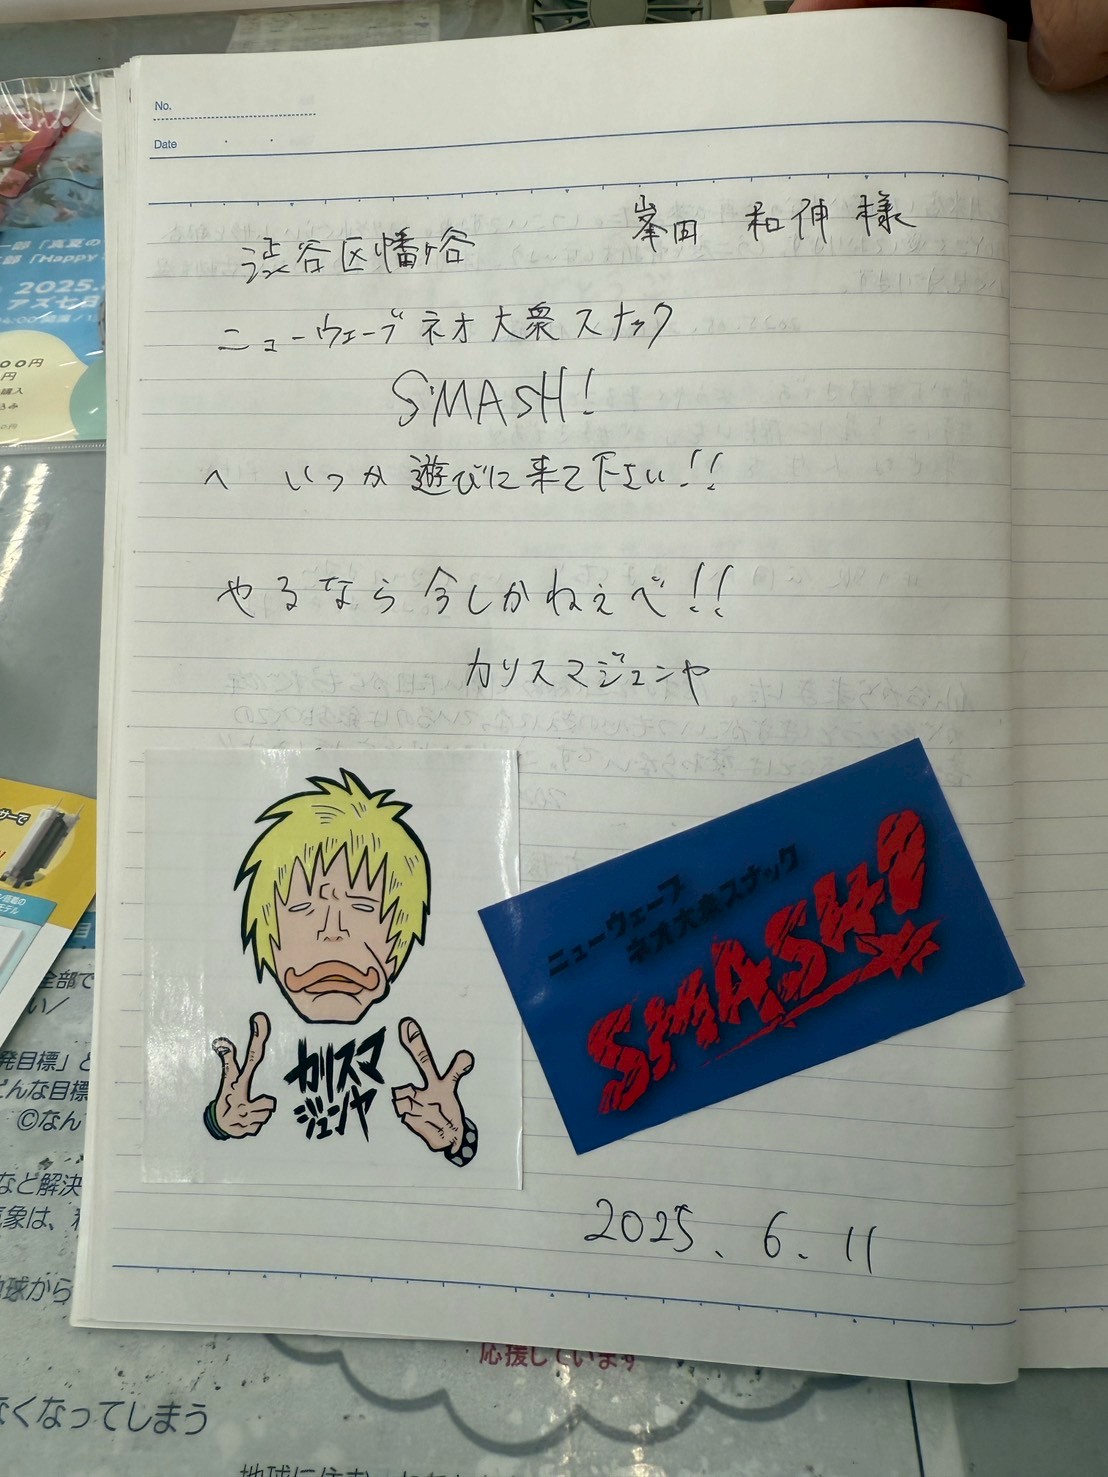 No.
Date
峯田 和伸 様
渋谷区幡ヶ谷
ニューウェーブ ネオ大衆スナック
SMASH!
へ いつか 遊びに来て下さい!!
やるなら今しかねえべ!!
カリスマジュンヤ
カリスマ
ジュンヤ
ニューウェーブ
ネオ大衆スナック
SMASH!
2025.6.11
一部「真夏の
部「Happy
2025.
アズ七
00円
円
購入
込み
サーで
全部で
い/
発目標」と
どんな目標
©なん
など解決
気象は、
地球から
応援しています
なくなってしまう
地球に住む